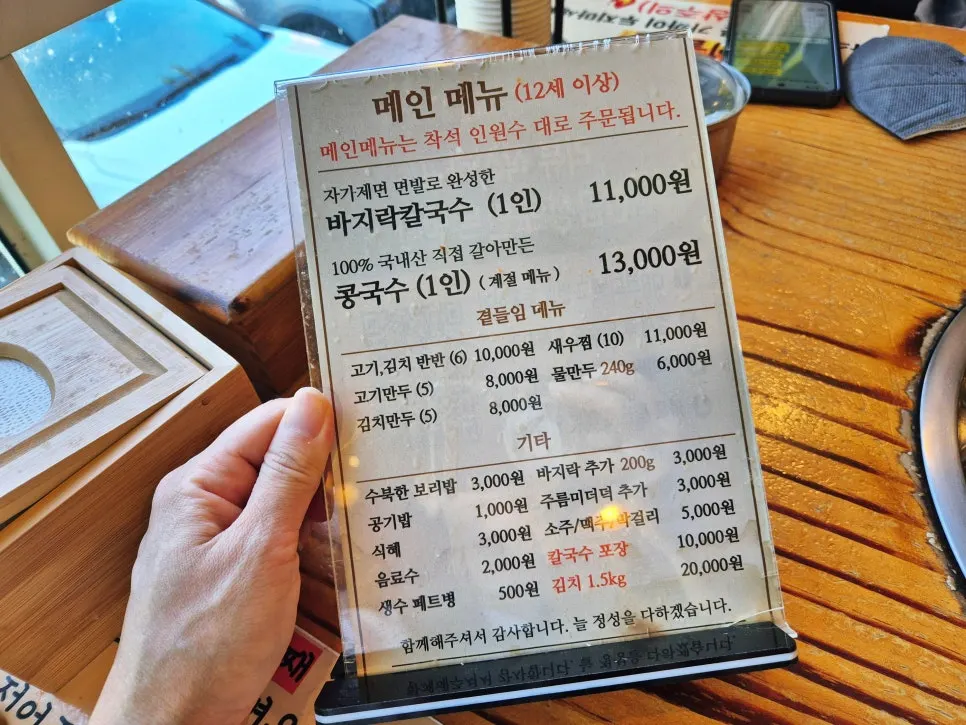 메인 메뉴 (12세 이상)
메인메뉴는 착석 인원수 대로 주문됩니다.
자가제면 면발로 완성한
바지락칼국수 (1인) 11,000원
100% 국내산 직접 갈아만든
콩국수 (1인) (계절 메뉴) 13,000원
곁들임 메뉴
고기,김치 반반 (6) 10,000원 새우찜 (10) 11,000원
고기만두 (5) 8,000원 물만두 240g 6,000원
김치만두 (5) 8,000원
기타
수북한 보리밥 3,000원 바지락 추가 200g 3,000원
공기밥 1,000원 주름미더덕 추가 3,000원
식혜 3,000원 소주/맥주/막걸리 5,000원
음료수 2,000원 칼국수 포장 10,000원
생수 페트병 500원 김치 1.5kg 20,000원
함께해주셔서 감사합니다. 늘 정성을 다하겠습니다.
째
저어